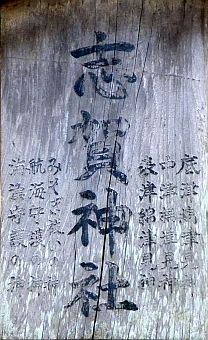 底津綿津見神
中津綿津見神
表津綿津見神
志賀神社
みそぎ祓の神
航海守護の神
海深守護の神